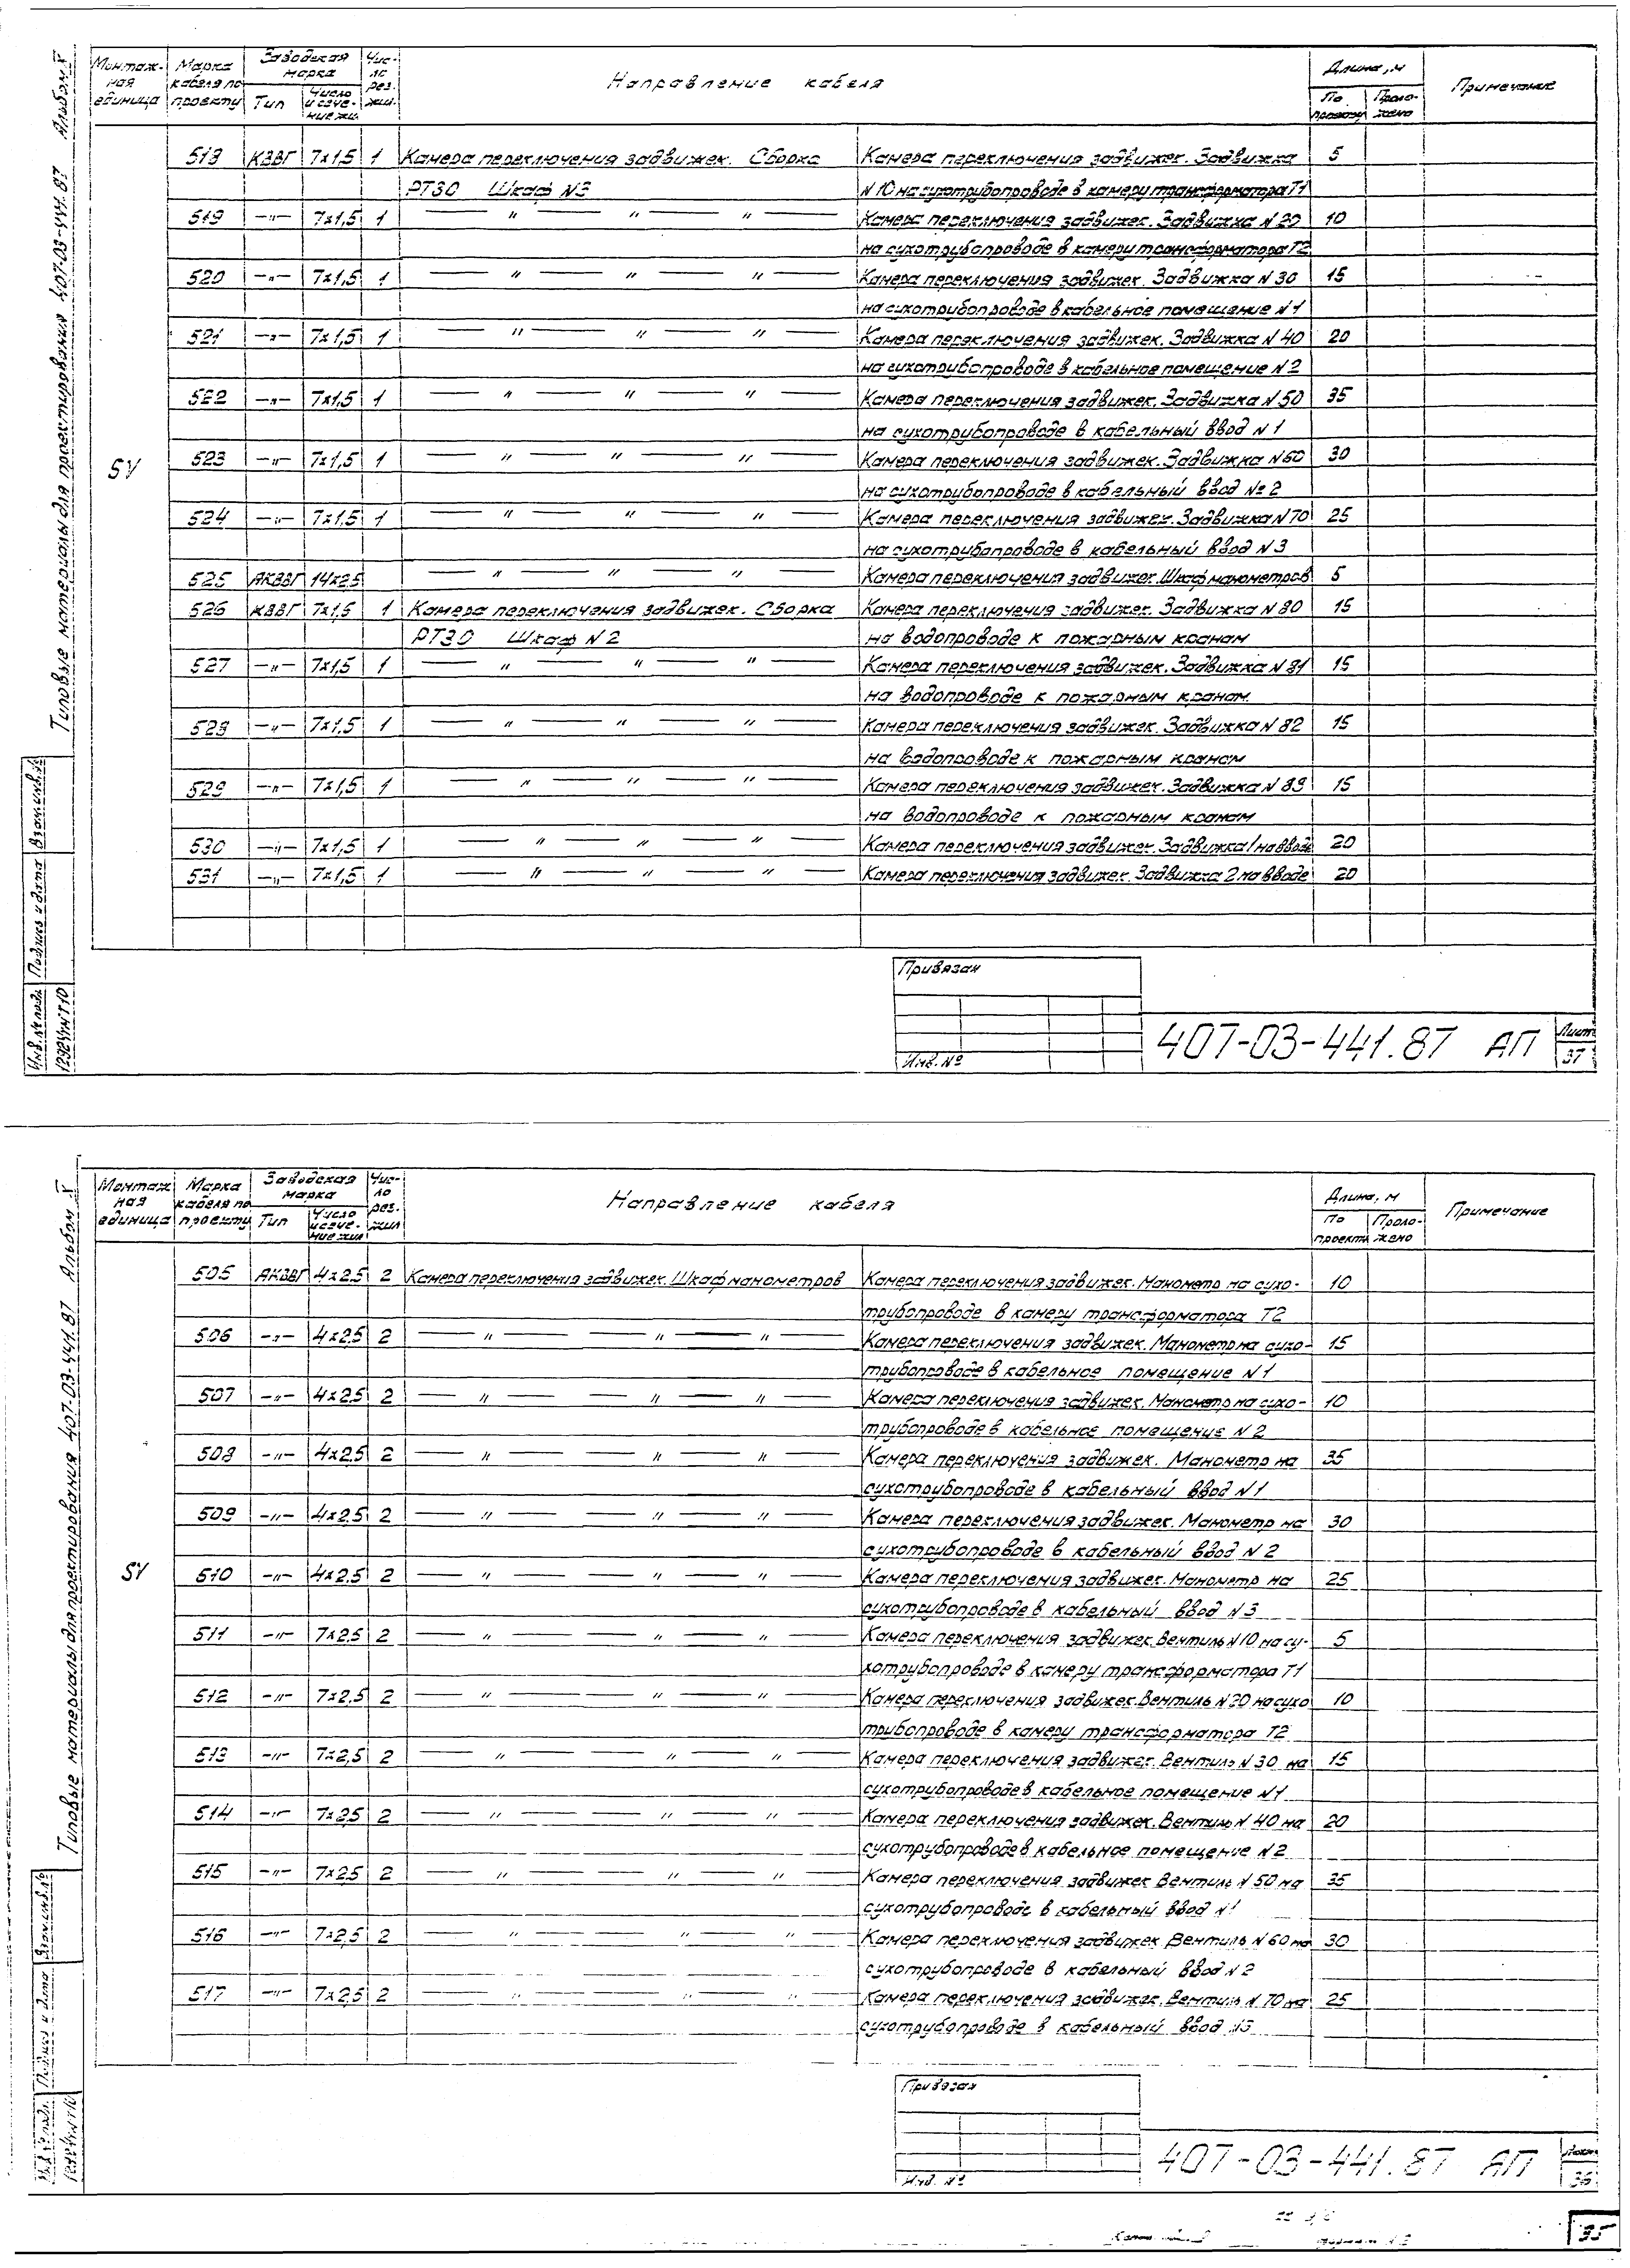 Типовые материалы для проектирования 407-03-441.87 Альбом V
Монтаж-ная единица | Марка кабеля по проекту | Заводская марка | Чис-ло рез. жил | Направление кабеля | Длина, м | Примечание
Тип | Число и сече-ние жил | По проекту | Проло-жено
518 КВВГ 7х1,5 1 Камера переключения задвижек. Сборка Камера переключения задвижек. Задвижка 5
РТЗО Шкаф N3 N 10 на сухотрубопроводе в камеру трансформатора Т1
519 —"— 7х1,5 1 — " — " — " — Камера переключения задвижек. Задвижка N 20 10
на сухотрубопроводе в камеру трансформатора Т2
520 —"— 7х1,5 1 — " — " — " — Камера переключения задвижек. Задвижка N 30 15
на сухотрубопроводе в кабельное помещение N 1
521 —"— 7х1,5 1 — " — " — " — Камера переключения задвижек. Задвижка N 40 20
на сухотрубопроводе в кабельное помещение N 2
522 —"— 7х1,5 1 — " — " — " — Камера переключения задвижек. Задвижка N 50 35
на сухотрубопроводе в кабельный ввод N 1
SY
523 —"— 7х1,5 1 — " — " — " — Камера переключения задвижек. Задвижка N 60 30
на сухотрубопроводе в кабельный ввод № 2
524 —"— 7х1,5 1 — " — " — " — Камера переключения задвижек. Задвижка N 70 25
на сухотрубопроводе в кабельный ввод N 3
525 АКВВГ 14х2,5 — " — " — " — Камера переключения задвижек. Шкаф манометров 5
526 КВВГ 7х1,5 1 Камера переключения задвижек. Сборка Камера переключения задвижек. Задвижка N 80 15
РТЗО Шкаф N 2 на водопроводе к пожарным кранам
527 —"— 7х1,5 1 — " — " — " — Камера переключения задвижек. Задвижка N 81 15
на водопроводе к пожарным кранам.
528 —"— 7х1,5 1 — " — " — " — Камера переключения задвижек. Задвижка N 82 15
на водопроводе к пожарным кранам
529 —"— 7х1,5 1 — " — " — " — Камера переключения задвижек. Задвижка N 89 15
на водопроводе к пожарным кранам
530 —"— 7х1,5 1 — " — " — " — Камера переключения задвижек. Задвижка 1 на вводе 20
531 —"— 7х1,5 1 — " — " — " — Камера переключения задвижек. Задвижка 2 на вводе 20
Взам.инв.№
Подпись и дата
Инв.№ подл.
Привязан
Инв. №
407-03-441.87 АП
Лист
37
Типовые материалы для проектирования 407-03-441.87 Альбом V
Монтаж ная единица | Марка кабеля по проекту | Заводская марка | Чис-ло рез. жил | Направление кабеля | Длина, м | Примечание
Тип | Число и сече-ние жил | По проекту | Проло-жено
505 АКВВГ 4х2,5 2 Камера переключения задвижек. Шкаф манометров Камера переключения задвижек. Манометр на сухо- 10
трубопроводе в камеру трансформатора Т2
506 —"— 4х2,5 2 — " — " — " — Камера переключения задвижек. Манометр на сухо- 15
трубопроводе в кабельное помещение N 1
507 —"— 4х2,5 2 — " — " — " — Камера переключения задвижек. Манометр на сухо- 10
трубопроводе в кабельное помещение N 2
508 —"— 4х2,5 2 — " — " — " — Камера переключения задвижек. Манометр на 35
сухотрубопроводе в кабельный ввод N 1
509 —"— 4х2,5 2 — " — " — " — Камера переключения задвижек. Манометр на 30
сухотрубопроводе в кабельный ввод N 2
SY
510 —"— 4х2,5 2 — " — " — " — Камера переключения задвижек. Манометр на 25
сухотрубопроводе в кабельный ввод N 3
511 —"— 7х2,5 2 — " — " — " — Камера переключения задвижек. Вентиль N 10 на су- 5
хотрубопроводе в камеру трансформатора Т1
512 —"— 7х2,5 2 — " — " — " — Камера переключения задвижек. Вентиль N 20 на сухо 10
трубопроводе в камеру трансформатора Т2
513 —"— 7х2,5 2 — " — " — " — Камера переключения задвижек. Вентиль N 30 на 15
сухотрубопроводе в кабельное помещение N 1
514 —"— 7х2,5 2 — " — " — " — Камера переключения задвижек. Вентиль N 40 на 20
сухотрубопроводе в кабельное помещение N 2
515 —"— 7х2,5 2 — " — " — " — Камера переключения задвижек Вентиль N 50 на 35
сухотрубопроводе в кабельный ввод N 1
516 —"— 7х2,5 2 — " — " — " — Камера переключения задвижек Вентиль N 60 на 30
сухотрубопроводе в кабельный ввод N 2
517 —"— 7х2,5 2 — " — " — " — Камера переключения задвижек. Вентиль N 70 на 25
сухотрубопроводе в кабельный ввод N3
Взам.инв.№
Подпись и дата
Инв.№ подл.
Привязан
Инв. №
407-03-441.87 АП
Лист
36
35